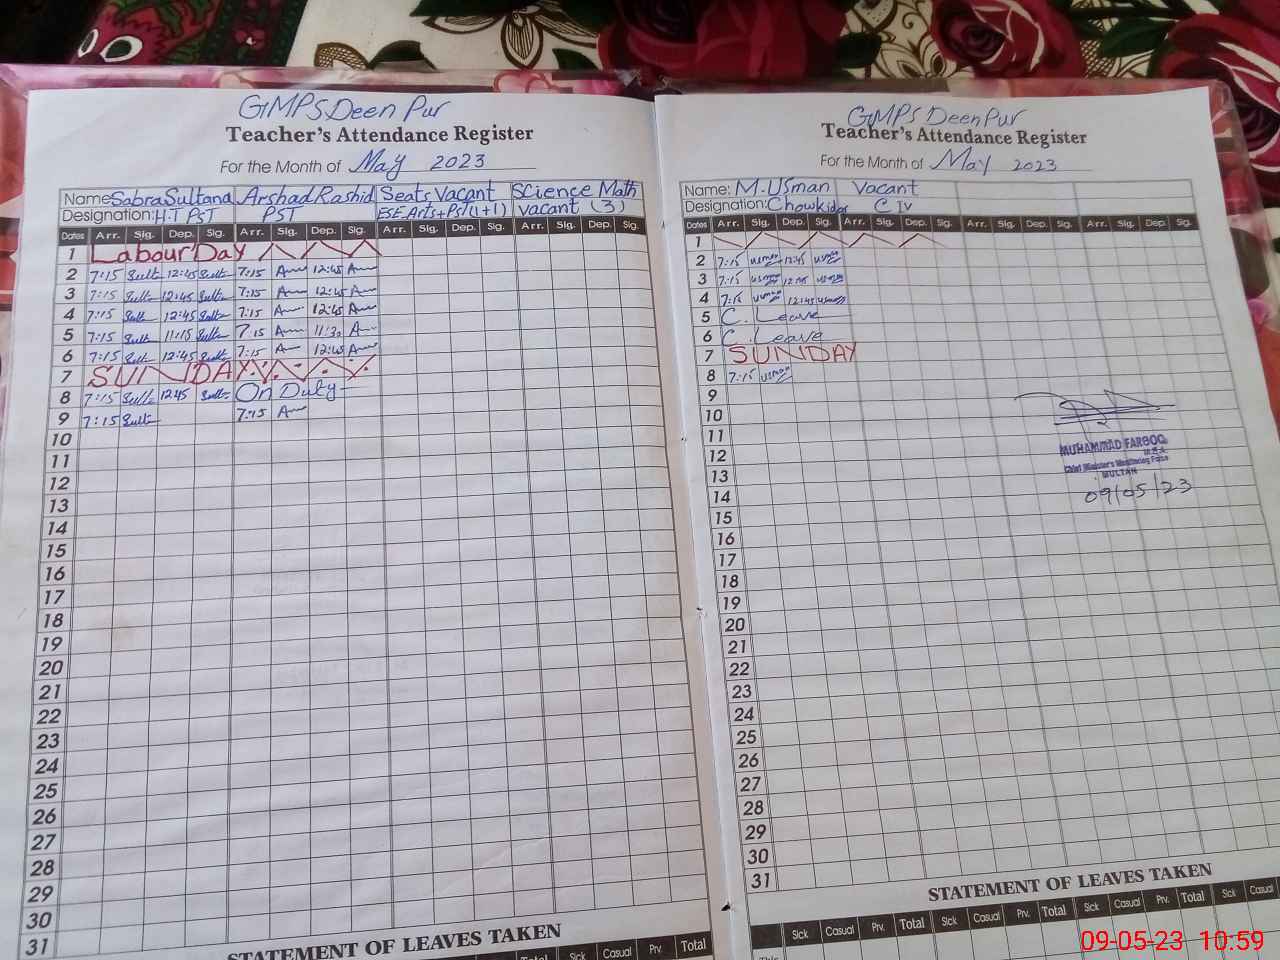 GMPS Deen Pur
Teacher's Attendance Register
For the Month of May 2023
Name Sabra Sultana Arshad Rashid Seats Vacant Science Math
Designation: H.T PST PST ESE Arts + PST (1+1) Vacant (3)
Dates Arr. Sig. Dep. Sig. Arr. Sig. Dep. Sig. Arr. Sig. Dep. Sig. Arr. Sig. Dep. Sig.
1 Labour Day
2 7:15 Sult 12:45 Sult 7:15 12:45
3 7:15 Sult 12:45 Sult 7:15 12:45
4 7:15 Sult 12:45 Sult 7:15 12:45
5 7:15 Sult 11:15 Sult 7:15 11:30
6 7:15 Sult 12:45 Sult 7:15 12:45
7 SUNDAY
8 7:15 Sult 12:45 Sult On Duty
9 7:15 Sult 7:15
10
11
12
13
14
15
16
17
18
19
20
21
22
23
24
25
26
27
28
29
30
31
STATEMENT OF LEAVES TAKEN
Total Sick Casual Prv. Total
GMPS Deen Pur
Teacher's Attendance Register
For the Month of May 2023
Name: M. Usman Vacant
Designation: Chowkidar C IV
Dates Arr. Sig. Dep. Sig. Arr. Sig. Dep. Sig. Arr. Sig. Dep. Sig. Arr. Sig. Dep. Sig.
1
2 7:15 Usman 12:45 Usman
3 7:15 Usman 12:45 Usman
4 7:15 Usman 12:45 Usman
5 C. Leave
6 C. Leave
7 SUNDAY
8 7:15 Usman
9
10
11
12
13
14
15
16
17
18
19
20
21
22
23
24
25
26
27
28
29
30
31
MUHAMMAD FAROOQ
M.E.A
Chief Minister's Monitoring Force
MULTAN
09/05/23
STATEMENT OF LEAVES TAKEN
Sick Casual Prv. Total Sick Casual Prv. Total Sick Casual Prv. Total Sick Casual
This
09-05-23 10:59